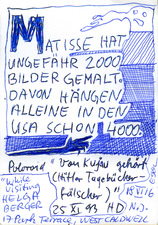 MATISSE HAT
UNGEFÄHR 2000
BILDER GEMALT.
DAVON HÄNGEN
ALLEINE IN DEN
USA SCHON 4000.
Polaroid "von Kujau gehört
"While (Hitler Tagebücher
visiting fälscher)
HELGA 18 VI 16
BERGER 25 XI 93 HD
17 Park Terrace, WEST CALDWELL, N.J.